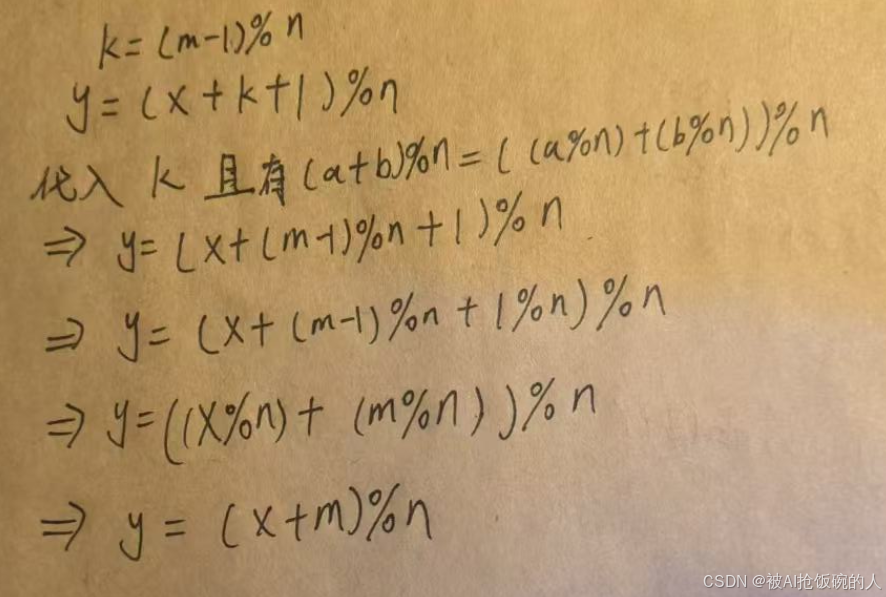 k=(m-1)%n
y=(x+k+1)%n
代入 k 且有(a+b)%n=((a%n)+(b%n))%n
⇒ y=(x+(m-1)%n+1)%n
⇒ y=(x+(m-1)%n+1%n)%n
⇒ y=((x%n)+(m%n))%n
⇒ y=(x+m)%n
CSDN @被AI抢饭碗的人